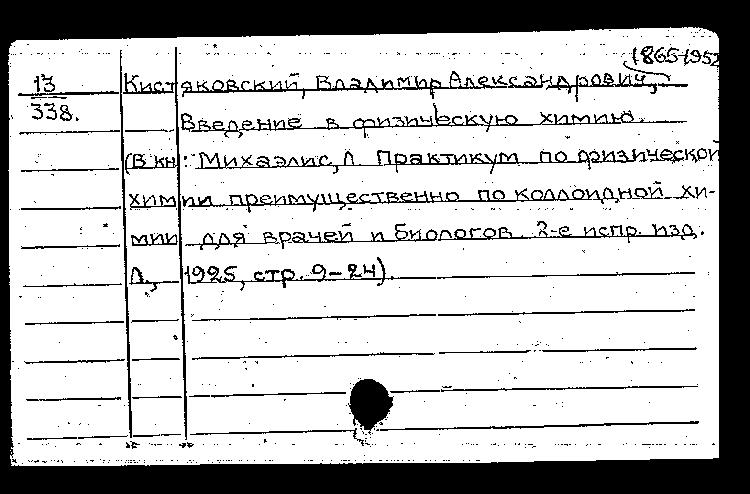 1865-1952
13 Кистяковский, Владимир Александрович,
338. Введение в физическую химию.
(В кн: Михаэлис, Л. Практикум по физической
химии преимущественно по коллоидной хи-
мии для врачей и биологов. 2-е испр. изд.
Л., 1925, стр. 9-24).